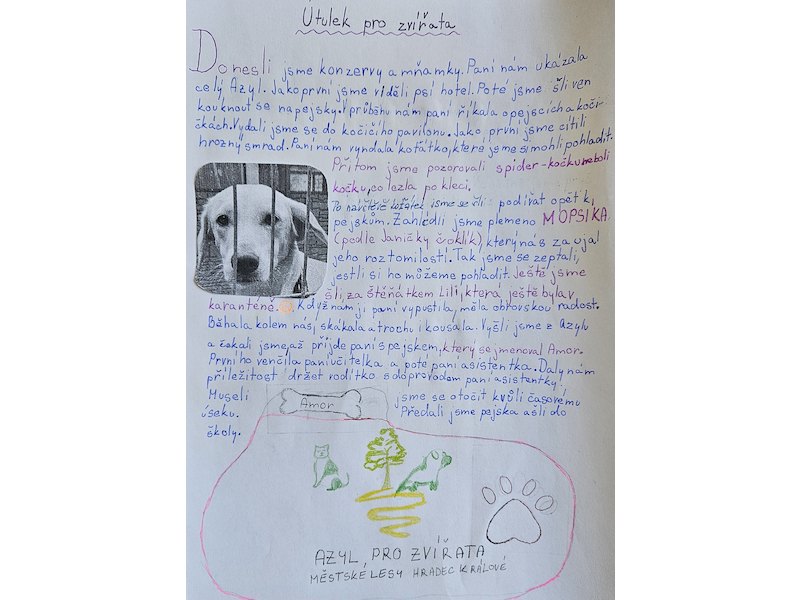 Útulek pro zvířata
Donesli jsme konzervy a mňamky. Paní nám ukázala
celý Azyl. Jako první jsme viděli psí hotel. Poté jsme šli ven
kouknout se na pejsky. V průběhu nám paní říkala o pejscích a koči-
čkách. Vydali jsme se do kočičího pavilonu. Jako první jsme cítili
hrozný smrad. Paní nám vyndala koťátko, které jsme si mohli pohladit.
Přitom jsme pozorovali spider-kočku neboli
kočku, co lezla po kleci.
Po návštěvě jsme šli podívat opět k
pejskům. Zahlédli jsme plemeno MOPSÍKA
(podle Janičky čoklík), který nás zaujal
jeho roztomilostí. Tak jsme se zeptali,
jestli si ho můžeme pohladit. Ještě jsme
šli za štěňátkem Lili, která ještě byla v
karanténě. Když nám ji paní vypustila, měla obrovskou radost.
Běhala kolem nás, skákala a trochu i kousala. Vyšli jsme z Azylu
a čekali jsme, až přijde paní s pejskem, který se jmenoval Amor.
Prvního venčila paní učitelka a poté paní asistentka. Daly nám
příležitost držet vodítko s doprovodem paní asistentky!
Museli jsme se otočit kvůli časovému
úseku. Předali jsme pejska a šli do
školy.
Amor
AZYL PRO ZVÍŘATA
MĚSTSKÉ LESY HRADEC KRÁLOVÉ